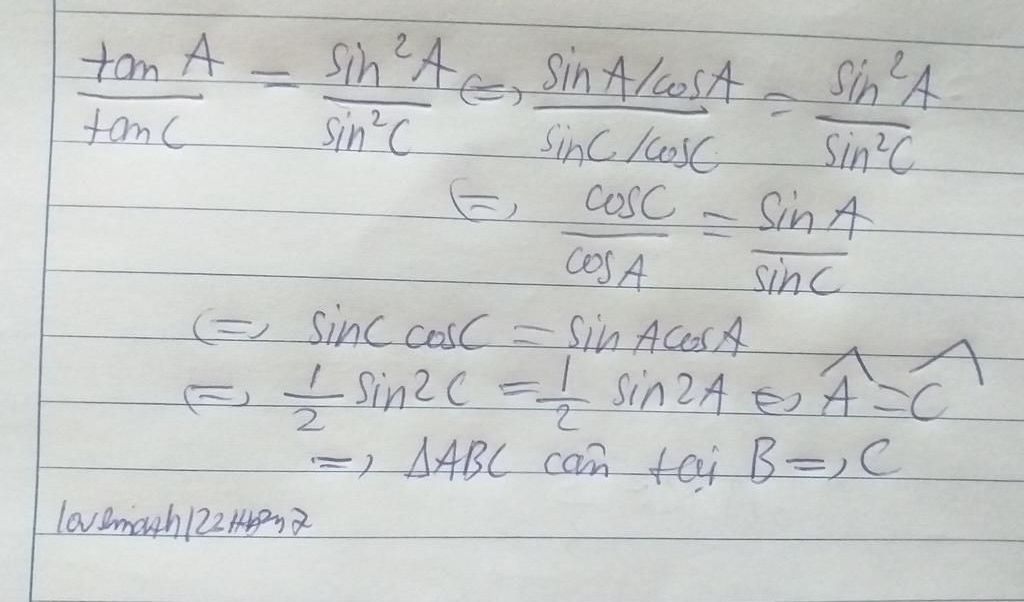 tan A / tan C = sin²A / sin²C ⇔ (sin A/cos A) / (sin C/cos C) = sin²A / sin²C
⇔ cos C / cos A = sin A / sin C
⇔ sin C cos C = sin A cos A
⇔ 1/2 sin2C = 1/2 sin2A ⇔ Â = Ĉ
⇒ ΔABC cân tại B ⇒ C